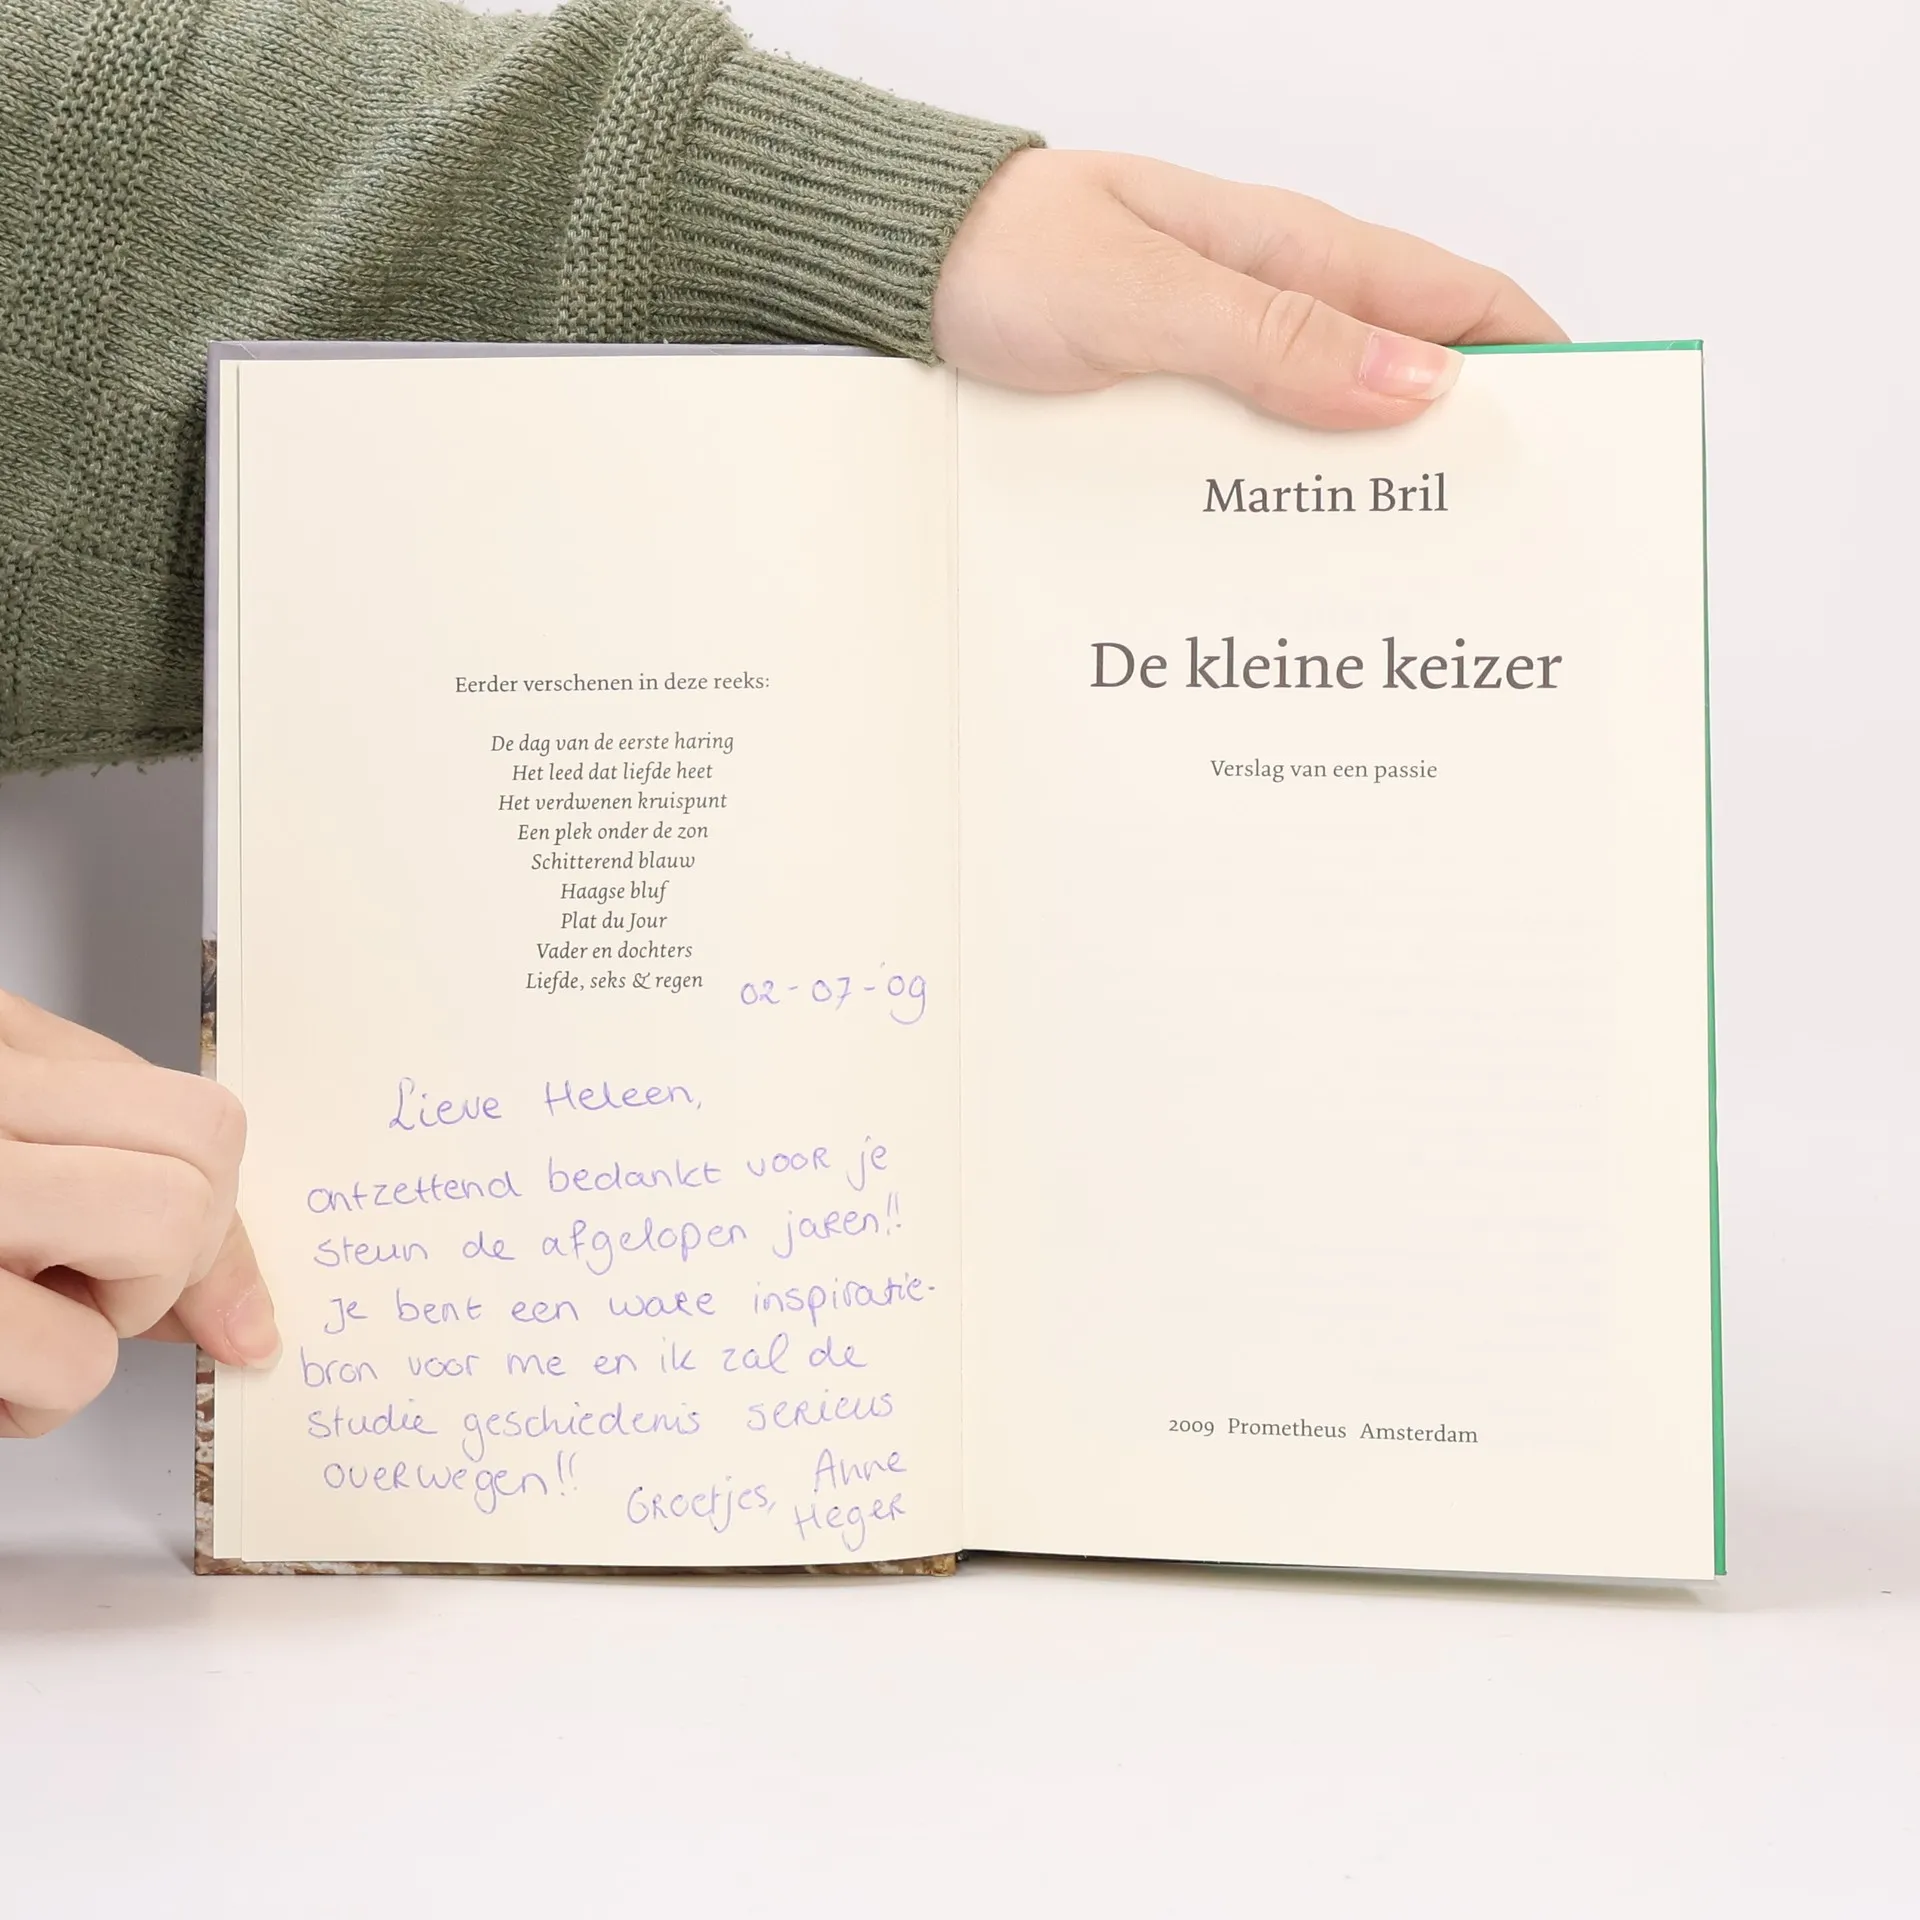 Eerder verschenen in deze reeks:
De dag van de eerste haring
Het leed dat liefde heet
Het verdwenen kruispunt
Een plek onder de zon
Schitterend blauw
Haagse bluf
Plat du Jour
Vader en dochters
Liefde, seks & regen
02-07-'09
Lieve Heleen,
ontzettend bedankt voor je
steun de afgelopen jaren!!
Je bent een ware inspiratie-
bron voor me en ik zal de
studie geschiedenis serieus
overwegen!!
Groetjes, Anne
Heger
Martin Bril
De kleine keizer
Verslag van een passie
2009 Prometheus Amsterdam